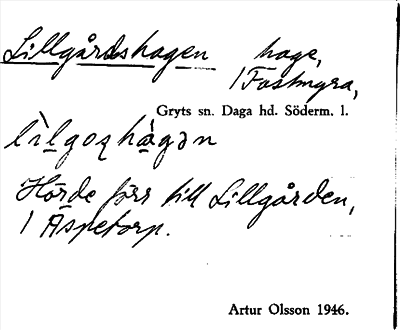 Lillgårdshagen hage,
/ Fastmyra,
Gryts sn. Daga hd. Söderm. l.
lìlgoꭗhàgən
Hörde förr till Lillgården,
/ Aspetorp.
Artur Olsson 1946.